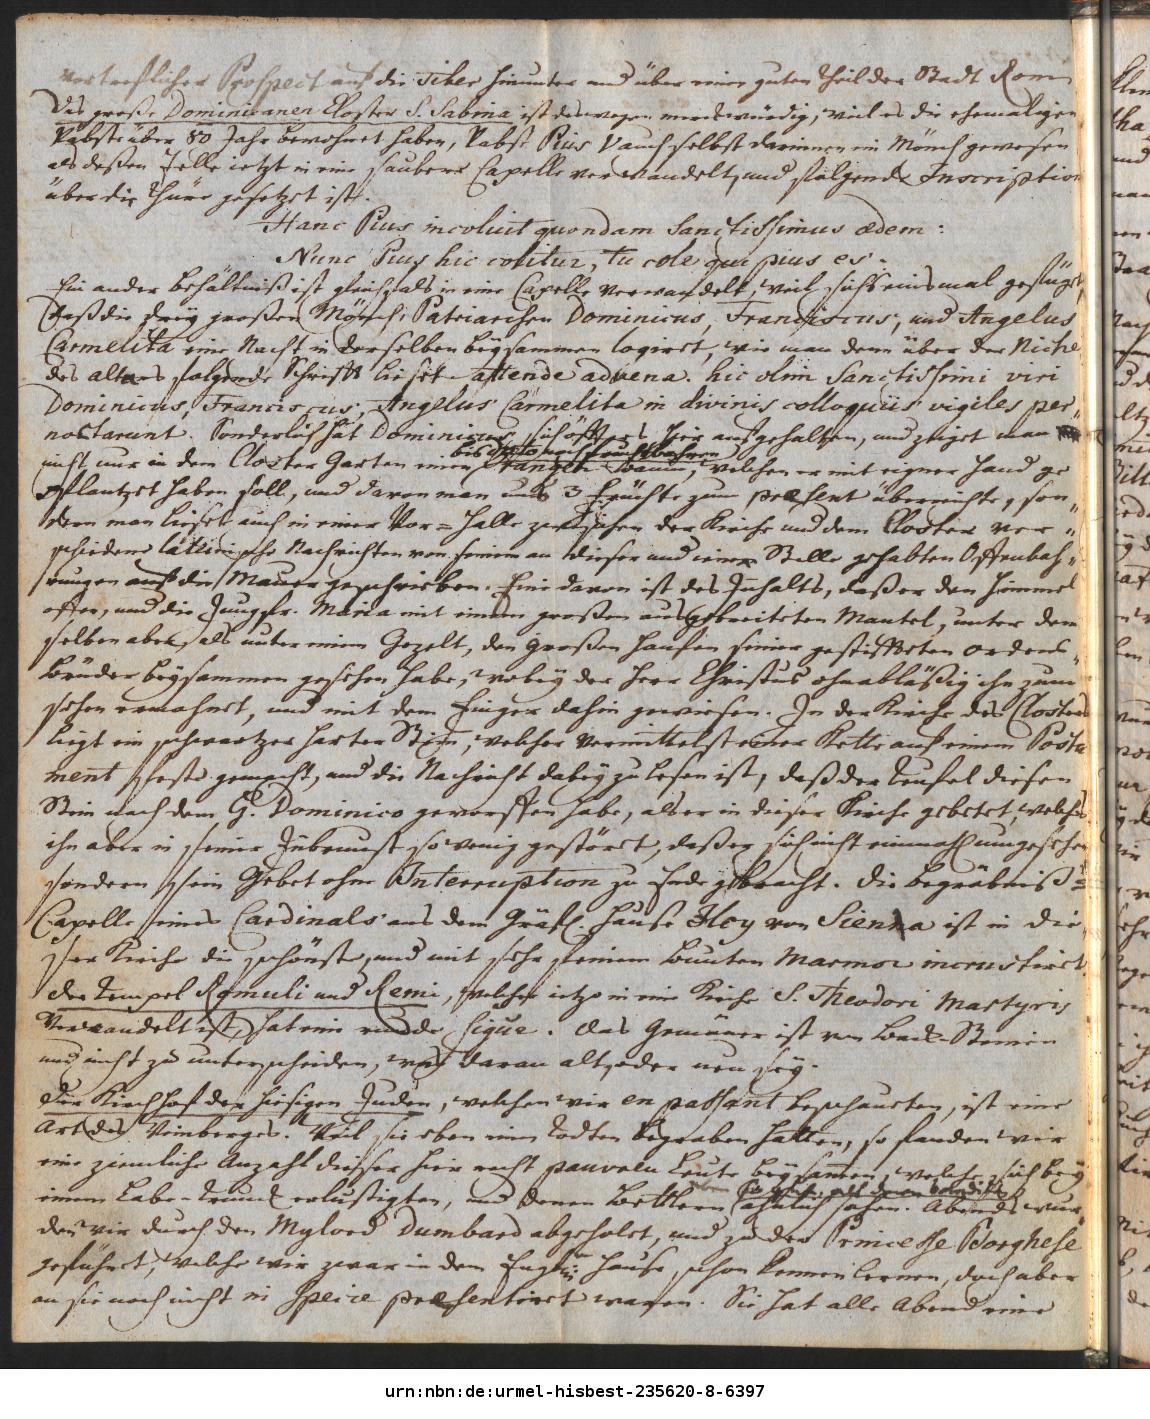 vortreflicher Prospect auf die Tiber hinunter und über einen guten Theil der Stadt Rom
Das große Dominicaner Closter S. Sabina ist deswegen merckwürdig, weil es die ehemaligen
Päbste über 80 Jahr bewohnet haben, Pabst Pius V auch selbst darinnen ein Mönch gewesen
als deßen Zelle ietzt in eine saubere Capelle verwandelt, und folgende Inscription
über die Thüre gesetzet ist.
Hanc Pius incoluit quondam Sanctissimus ædem:
Nunc Pius hic colitur, tu cole qui pius es.
Ein ander Behältniß ist gleichfals in eine Capelle verwandelt, weil sichs einsmal gefüget
daß die drey großen Mönch-Patriarchen Dominicus, Franciscus, und Angelus
Carmelita eine Nacht in derselben beysammen logiret, wie man denn über der Niche
des altars folgende Schrifft lieset attende advena. hic olim Sanctissimi viri
Dominicus, Franciscus, Angelus Carmelita in divinis colloquiis vigiles per-
noctarunt. Sonderlich hat Dominicus sich öffters hier aufgehalten, und zeiget man
bis dato noch fruchtbahren
nicht nur in dem Closter Garten einen Orangen Baum, welchen er mit eigner Hand ge
pflantzet haben soll, und davon man uns 3 Früchte zum præsent überreichte, son-
dern man lieset auch in einer Vor-Halle zwischen der Kirche und dem Closter ver-
schiedene lateinische Nachrichten von seinen an dieser und iener Stelle gehabten Offenbah-
rungen auf die Mauer geschrieben. Eine davon ist des Inhalts, daß er den Himmel
offen, und die Jungfr. Maria mit einem großen ausgebreiteten Mantel, unter dem
selben aber, als unter einem Gezelt, den großen Haufen seiner gestiffteten ordens-
Brüder beysammen gesehen habe, wobey der Herr Christus ohnabläßig ihn zum
sehen ermahnet, und mit dem Finger dahin gewiesen. In der Kirche des Closters
liegt ein schwartzer harter Stein, welcher vermittelst einer Kette auf einem Posta
ment feste gemacht, und die Nachricht dabey zu lesen ist, daß der Teufel diesen
Stein nach dem G. Dominico geworffen habe, als er in dieser Kirche gebetet, welches
ihn aber in seiner Inbrunst so wenig gestöret, daß er sich nicht einmahl umgesehen
sondern sein Gebet ohne Interruption zu Ende gebracht. Die Begräbniß-
Capelle eines Cardinals aus dem Gräfl. Hause Eloy von Sienna ist in die
ser Kirche die schönste, und mit sehr feinem bunten Marmor incrustiret
Der Tempel Romuli und Remi, welcher ietzo in eine Kirche S. Theodori Martyris
verwandelt ist, hat eine runde figur. Das Gemäuer ist von Back-Steinen
und nicht zu unterscheiden, was daran alt, oder neu sey.
Der Kirchhof der hiesigen Juden, welchen wir en passant beschaueten, ist eine
Art des Weinberges. Weil sie eben einen Todten begraben hatten, so fanden wir
eine ziemliche Anzahl dieser hier recht pauvren Leute beysammen, welche sich bey
einem Labe-Trunck erlustigten, und denen Bettlern ähnlich sahen. Abends wur-
den wir durch den Mylord Dumbard abgeholet, und zu der Princesse Borghese
geführet, welche wir zwar in dem Hause schon kennen lernen, doch aber
an sie noch nicht in Specie præsentiret waren. Sie hat alle Abend eine
urn:nbn:de:urmel-hisbest-235620-8-6397